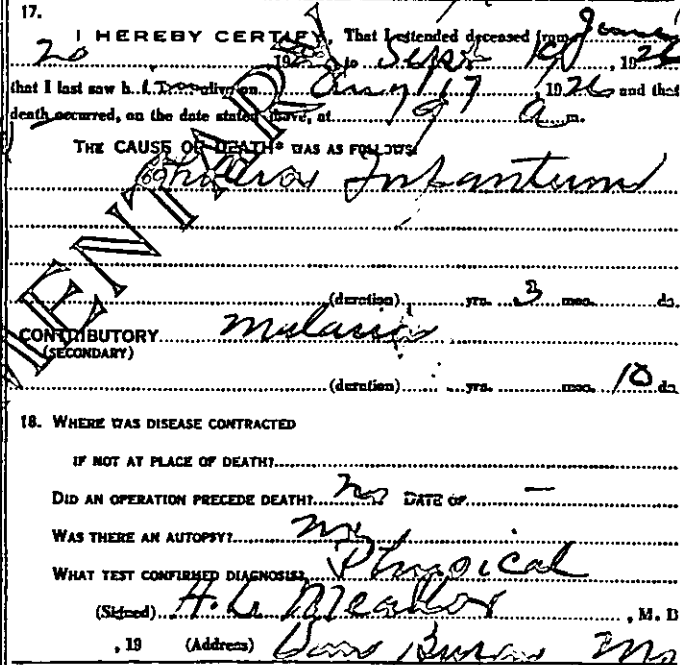 17.
I HEREBY CERTIFY, That I attended deceased from June
20 1926 to Sept 1926
that I last saw h alive on Aug 17, 1926 and that
death occurred, on the date stated above, at a m.
THE CAUSE OF DEATH* WAS AS FOLLOWS:
Cholera Infantum
(duration) yrs. 3 mos. ds.
CONTRIBUTORY Malaria
(SECONDARY)
(duration) yrs. mos. 10 ds.
18. WHERE WAS DISEASE CONTRACTED
IF NOT AT PLACE OF DEATH?
DID AN OPERATION PRECEDE DEATH? no DATE OF —
WAS THERE AN AUTOPSY? no
WHAT TEST CONFIRMED DIAGNOSIS? Physical
(Signed) H. L. , M. D
, 19 (Address) Van Buren Mo
MENTAR